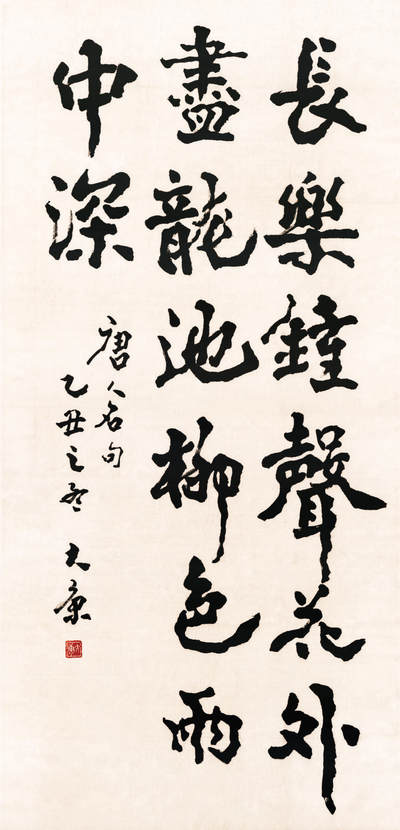 長樂鐘聲花外
盡龍池柳色雨
中深
唐人名句
乙丑之冬 大康